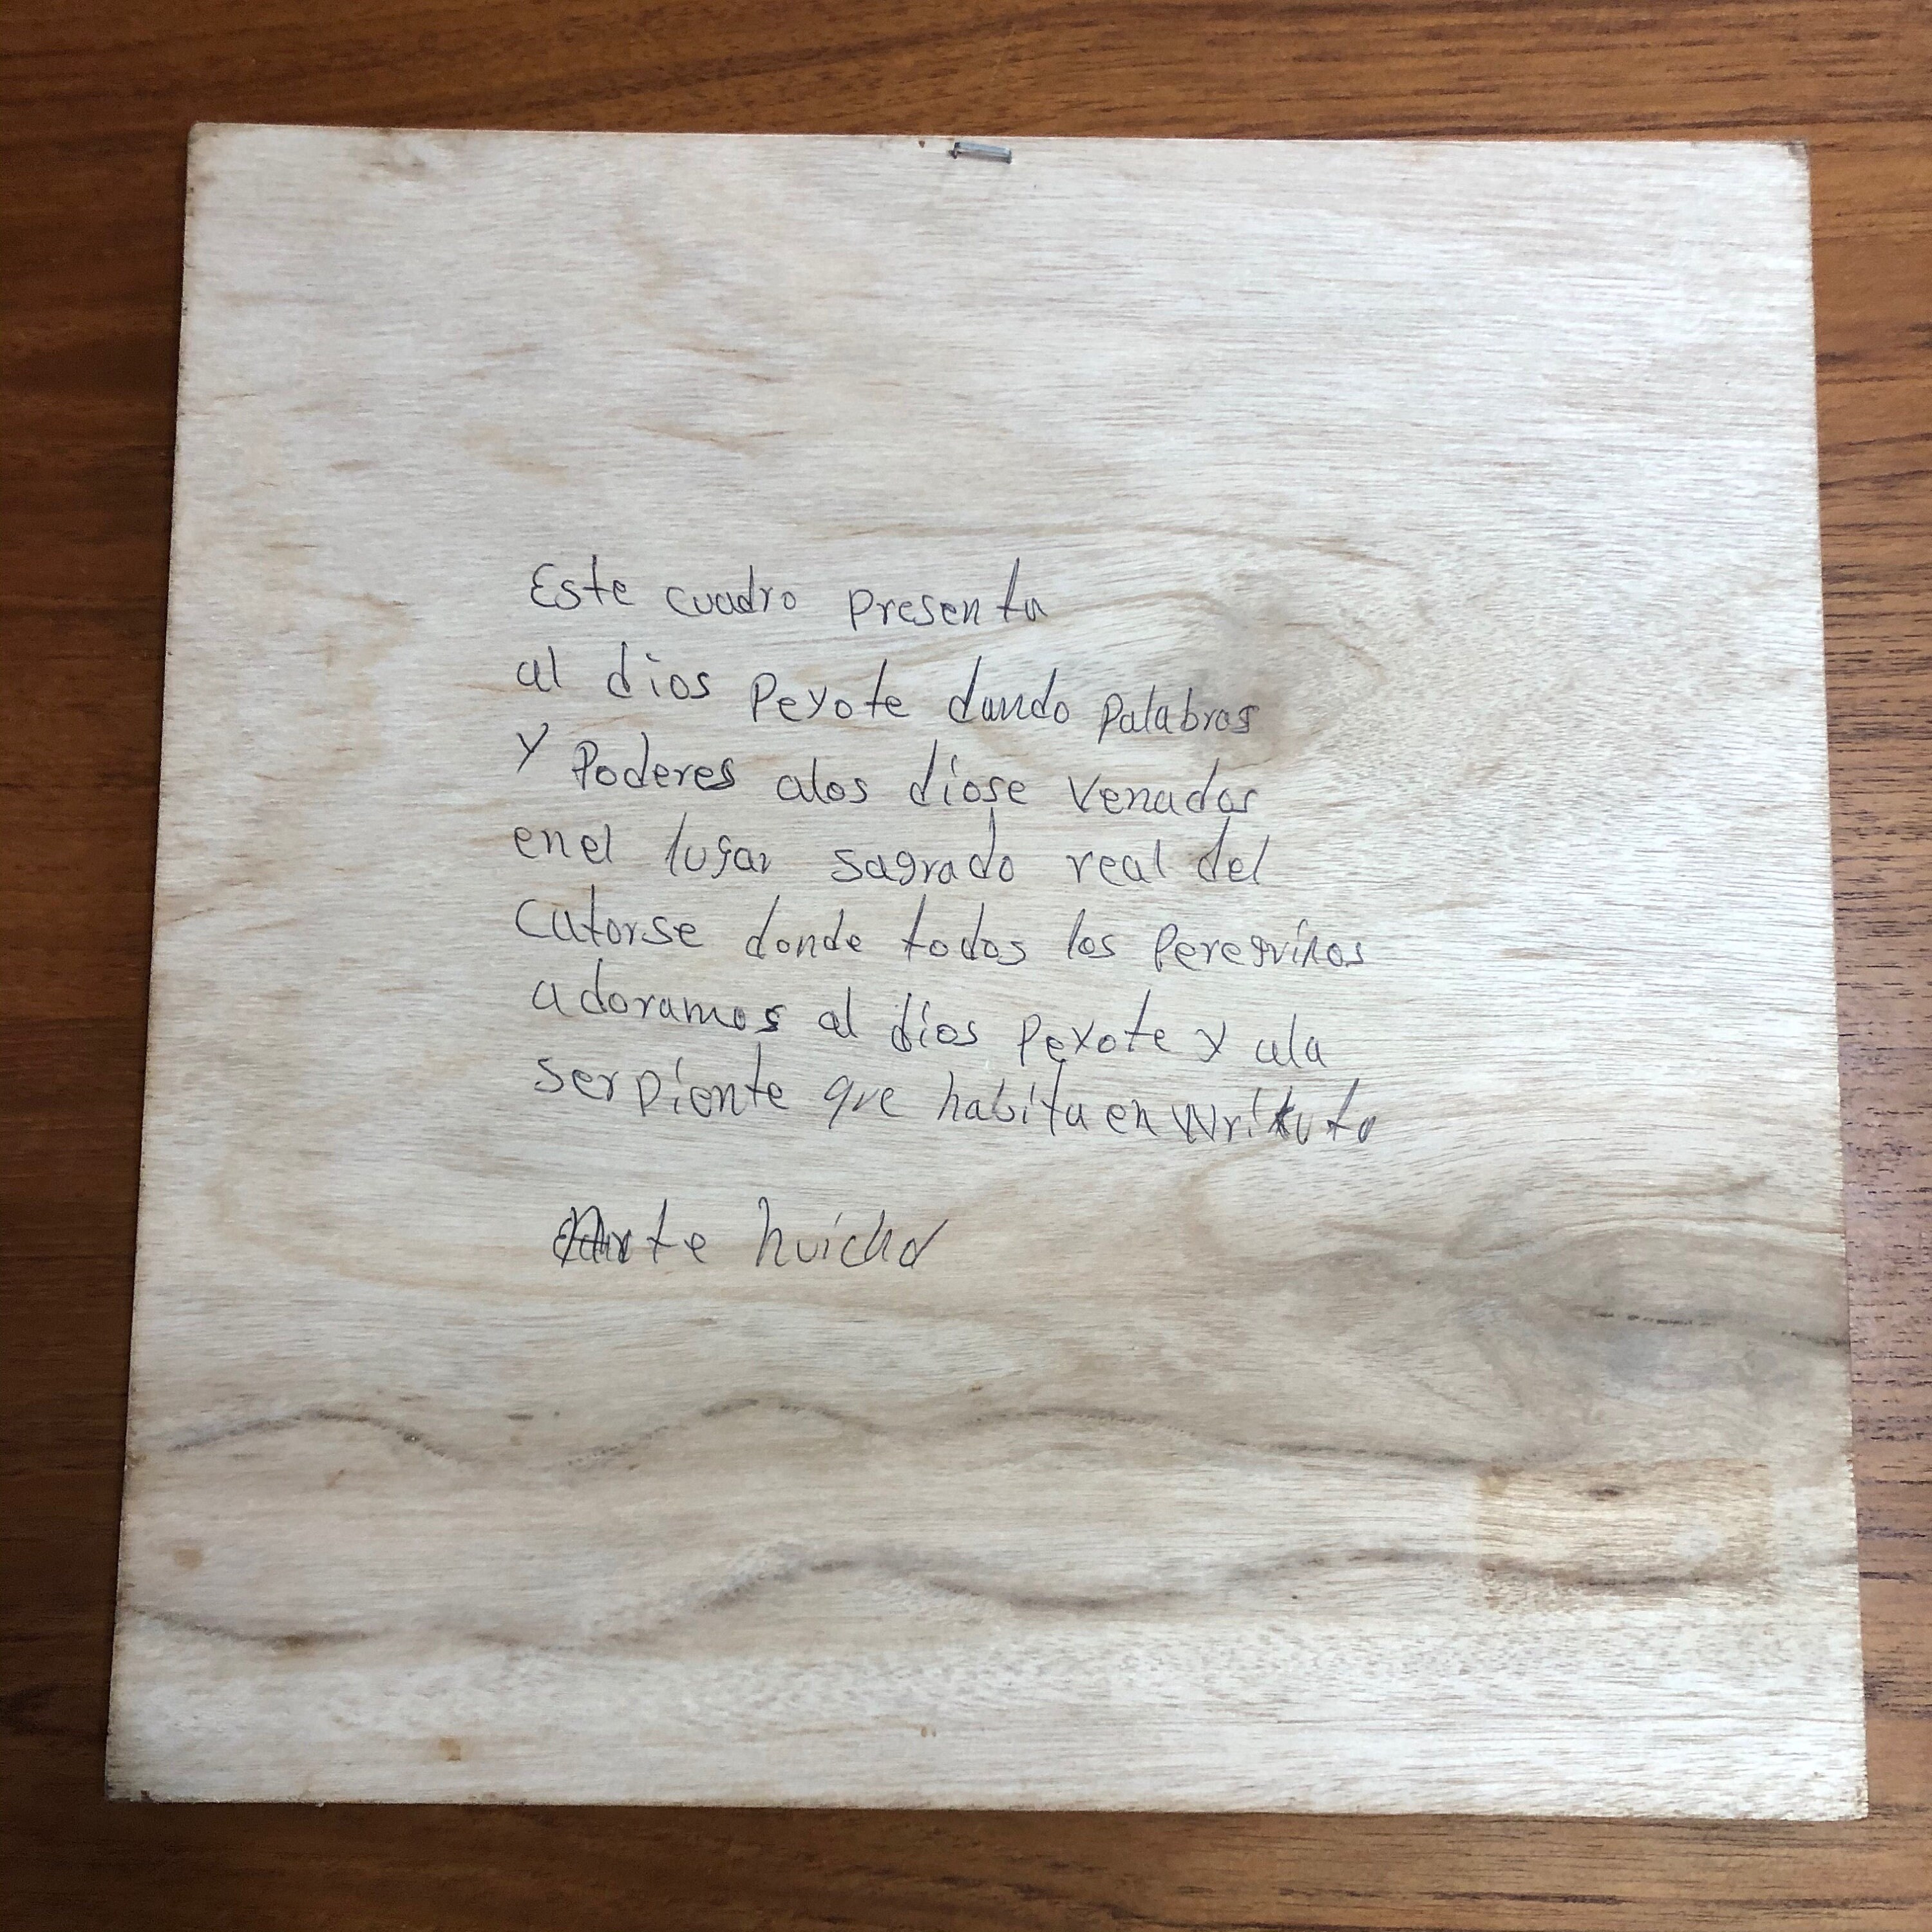 Este cuadro presenta
al dios Peyote dando Palabras
y Poderes alos diose venados
enel lugar sagrado real del
Catorse donde todos los Peregrinos
adoramos al dios Peyote y ala
serpiente que habita en
Arte huichol